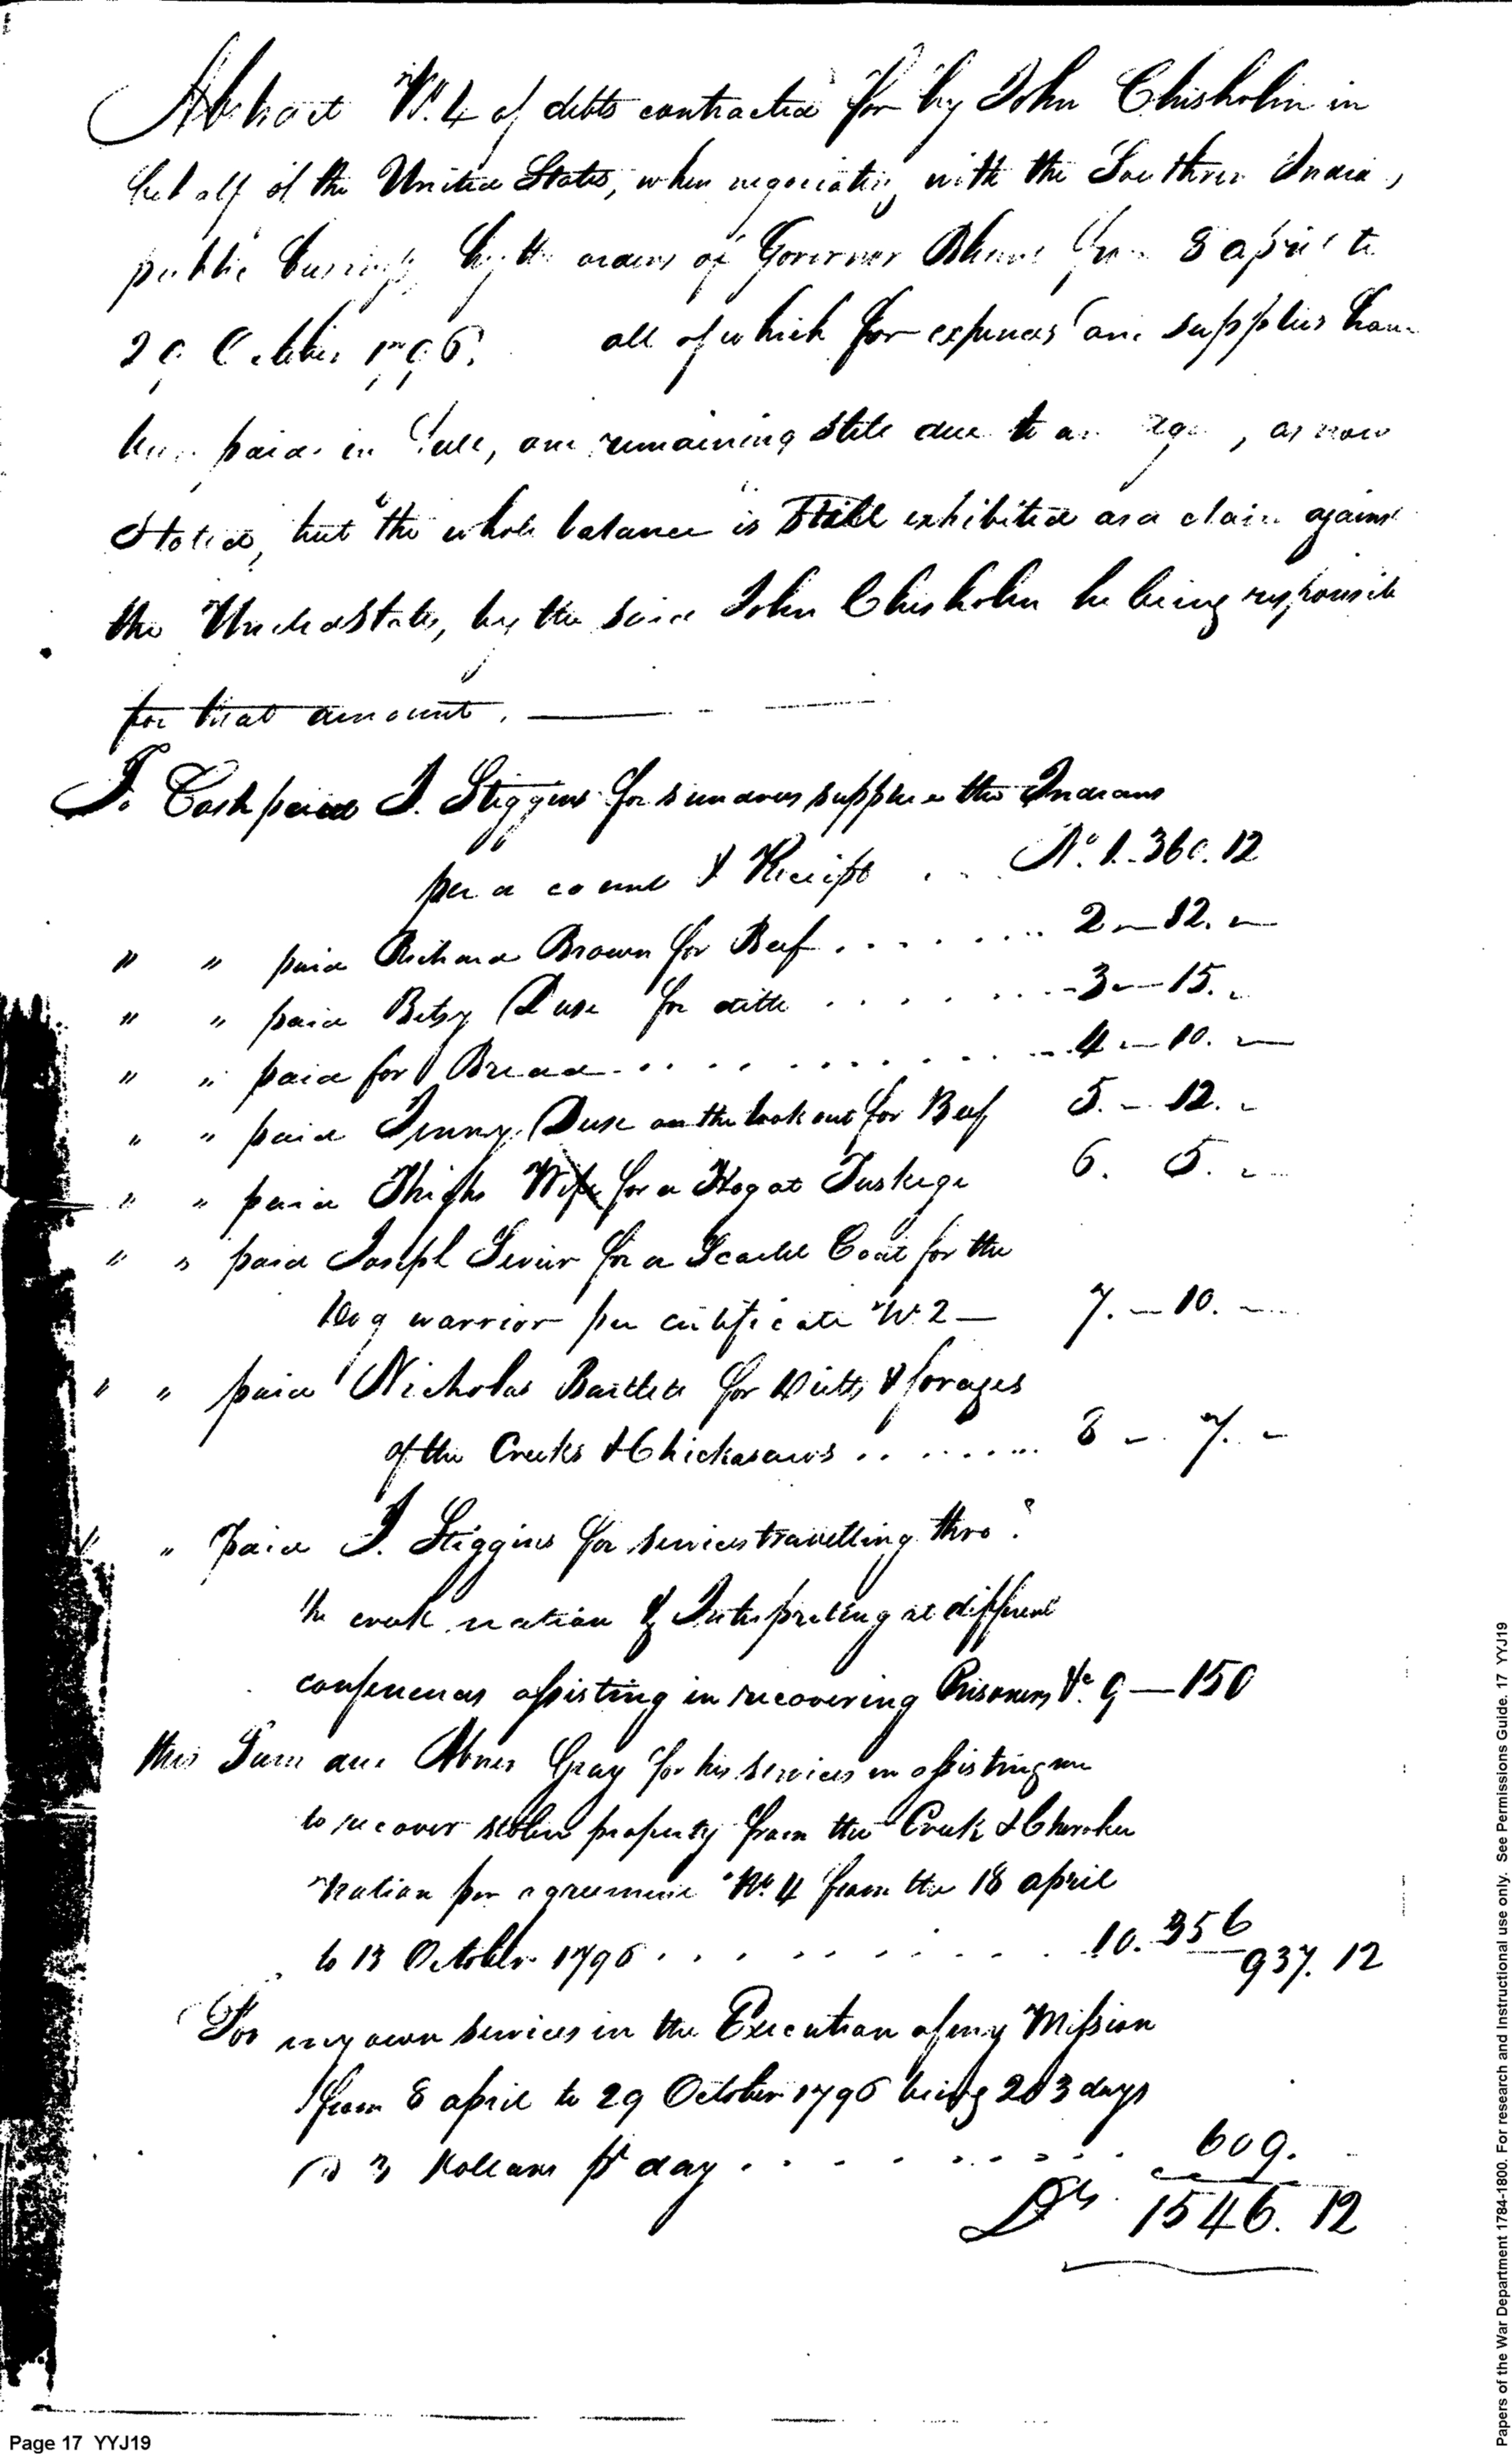 Abstract No. 4 of debts contracted for by John Chisholm in
behalf of the United States, when negociating with the Southern Indians,
public business by the orders of Governor Blount from 8 april to
29 October 1796. all of which for expences and supplies have
been paid in full, one remaining still due to an , as now
Stated, but the whole balance is Still exhibited as a claim against
the United States, by the said John Chisholm he being responsible
for that amount.
To Cash paid J. Stiggins for sundries supplies the Indians
per account & Receipt . . No. 1. 360. 12
" " paid Richard Brown for Beef . . . . . . . . 2 — 12. —
" " paid Betsy for ditto . . . . . . . . 3 — 15. —
" " paid for Bread . . . . . . . . . . . 4 — 10. —
" " paid Jenny on the look out for Beef 5. — 12. —
" " paid Wife for a Hog at Tuskege 6. 5. —
" " paid Joseph Sevier for a Scarlet Coat for the
warrior per certificate No. 2 — 7. — 10. —
" " paid Nicholas Bartlett for & forages
of the Creeks & Chickasaws . . . . . . . 8 — 7. —
" paid J. Stiggins for services travelling thro'
the creek nation & Interpreting at different
conferences assisting in recovering Prisoners &c. 9 — 150
this Sum due Abner Gray for his services in assisting me
to recover stolen property from the Creek & Cherokee
Nation per agreement No. 4 from the 18 april
to 13 October 1796 . . . . . . . . . . 10. 356
937. 12
For my own services in the Execution of my Mission
from 8 april to 29 October 1796 being 203 days
@ 3 Dollars pr day . . . . . . . . . 609. —
Drs. 1546. 12
Page 17 YYJ19
Papers of the War Department 1784-1800. For research and Instructional use only. See Permissions Guide. 17 YYJ19